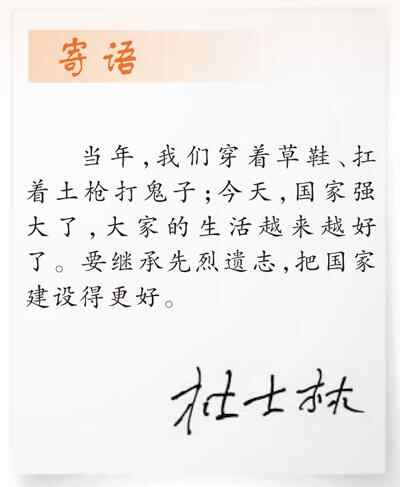 寄语
当年,我们穿着草鞋、扛
着土枪打鬼子;今天,国家强
大了,大家的生活越来越好
了。要继承先烈遗志,把国家
建设得更好。
杜士林